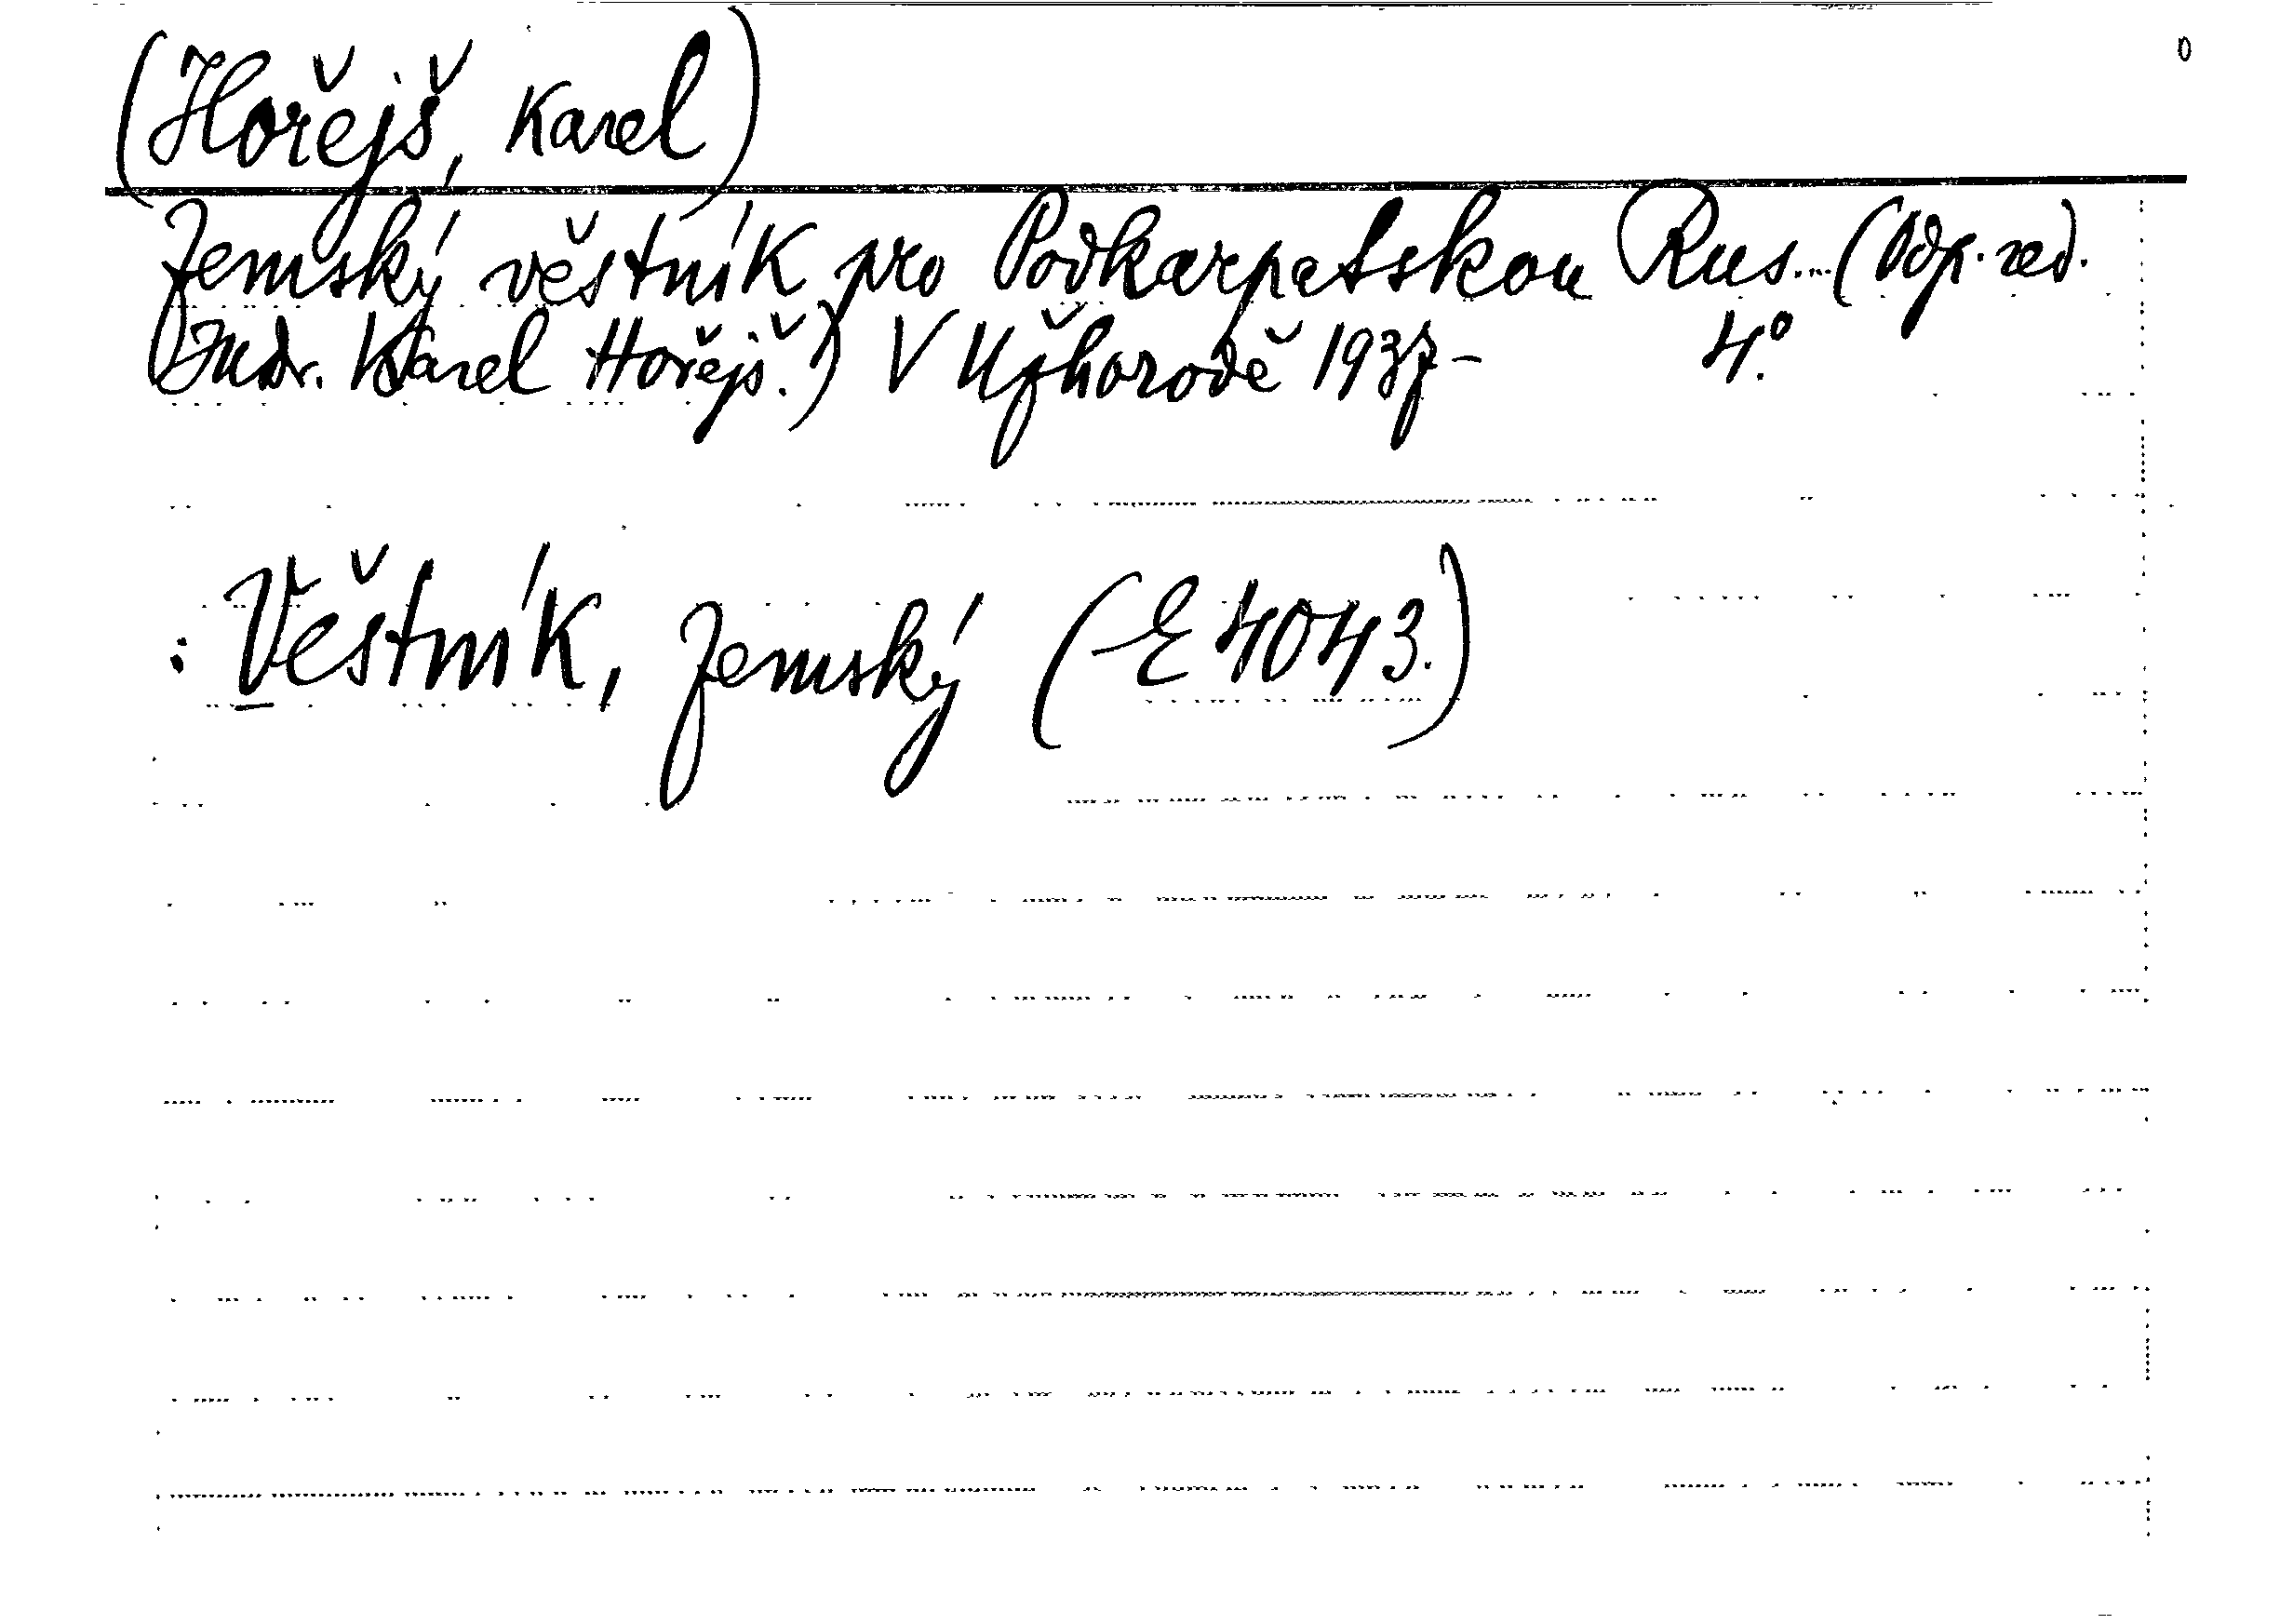 (Hořejš, Karel)
Zemský věstník pro Podkarpatskou Rus... (Odp. red.
Judr. Karel Hořejš.) V Užhorodě 1937- 4°.
: Věstník, zemský (E 4043.)